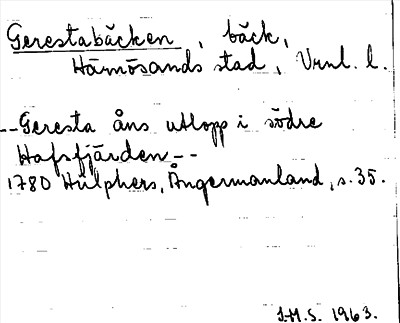 Gerestabäcken, bäck,
Härnösands stad, Vrnl. l.
--Geresta åns utlopp i södre
Hafsfjärden--
1780 Hülphers, Ångermanland, s. 35.
I.M.S. 1963.